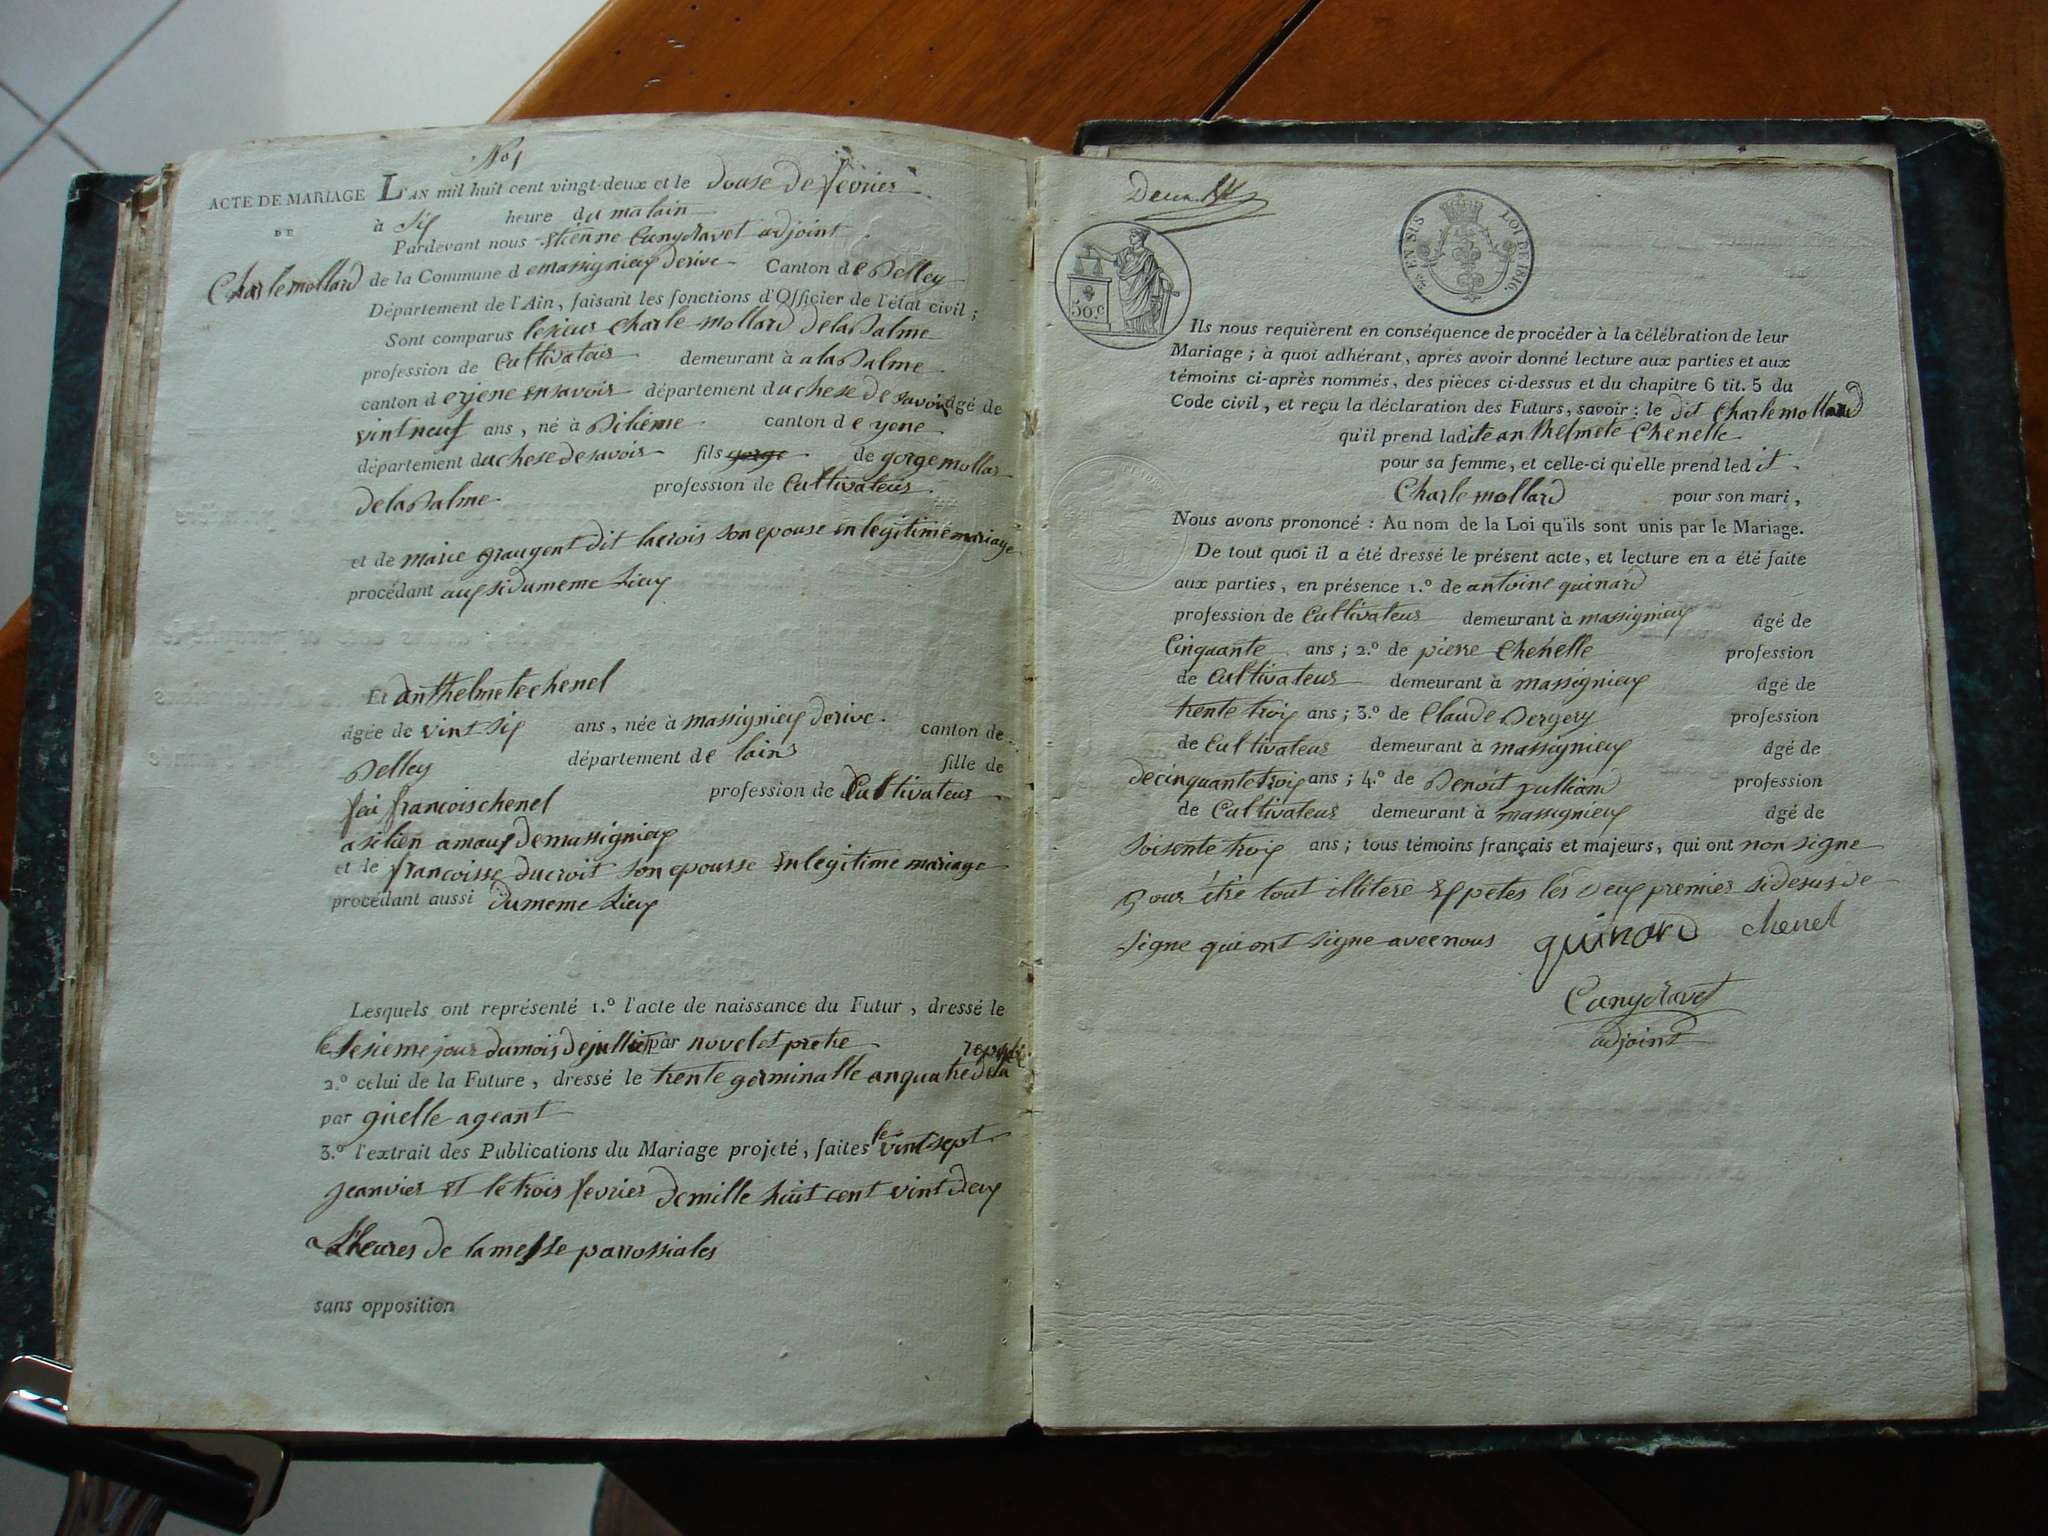 No 1
ACTE DE MARIAGE L'AN mil huit cent vingt-deux et le douse de fevrier
DE à six heure du matain
Pardevant nous Etienne adjoint
Charle mollard de la Commune de massignieux derive Canton de Belley
Département de l'Ain, faisant les fonctions d'Officier de l'état civil;
Sont comparus lesieur Charle mollard de la Balme
profession de Cultivateur demeurant à a la Balme
canton d eyene en savoir département duchese de savoir âgé de
vint neuf ans, né à canton de yene
département duchese de savoir fils gorge de gorge mollar
de la Balme profession de Cultivateur
et de marie dit lacrois son epouse en legitime mariage
procédant aussi du meme Lieux
Et anthelmete chenel
âgée de vint six ans, née à massignieux derive canton de
Belley département de lains fille de
feu francois chenel profession de Cultivateur
a silien amaus de massignieux
et le francoisse ducroit son epousse en legitime mariage
procédant aussi du meme Lieux
Lesquels ont représenté 1.º l'acte de naissance du Futur, dressé le
le sesieme jour du mois de jullier par novel et pretre
2.º celui de la Future, dressé le trente germinalle an quatre dela
par girelle ageant
3.º l'extrait des Publications du Mariage projeté, faites le vint sept
jeanvier et le trois fevrier de mille huit cent vint deux
a Lheures de la messe parossiales
sans opposition
Deux
50.c
EN SUS LOI DE 1816.
Ils nous requièrent en conséquence de procéder à la célébration de leur
Mariage; à quoi adhérant, après avoir donné lecture aux parties et aux
témoins ci-après nommés, des pièces ci-dessus et du chapitre 6 tit. 5 du
Code civil, et reçu la déclaration des Futurs, savoir: le dit Charle mollard
qu'il prend ladite anthelmete Chenelle
pour sa femme, et celle-ci qu'elle prend ledit
Charle mollard pour son mari,
Nous avons prononcé: Au nom de la Loi qu'ils sont unis par le Mariage.
De tout quoi il a été dressé le présent acte, et lecture en a été faite
aux parties, en présence 1.º de antoine guinard
profession de Cultivateur demeurant à massignieux âgé de
Cinquante ans; 2.º de pierre Chenelle profession
de Cultivateur demeurant à massignieux âgé de
trente trois ans; 3.º de Claude Bergery profession
de Cultivateur demeurant à massignieux âgé de
decinquante trois ans; 4.º de Benoit julliand profession
de Cultivateur demeurant à massignieux âgé de
soisente trois ans; tous témoins français et majeurs, qui ont non signe
pour être tout illitere Expetes les deux premier sidesus de
signe qui ont signe avec nous guinard chenel
adjoint